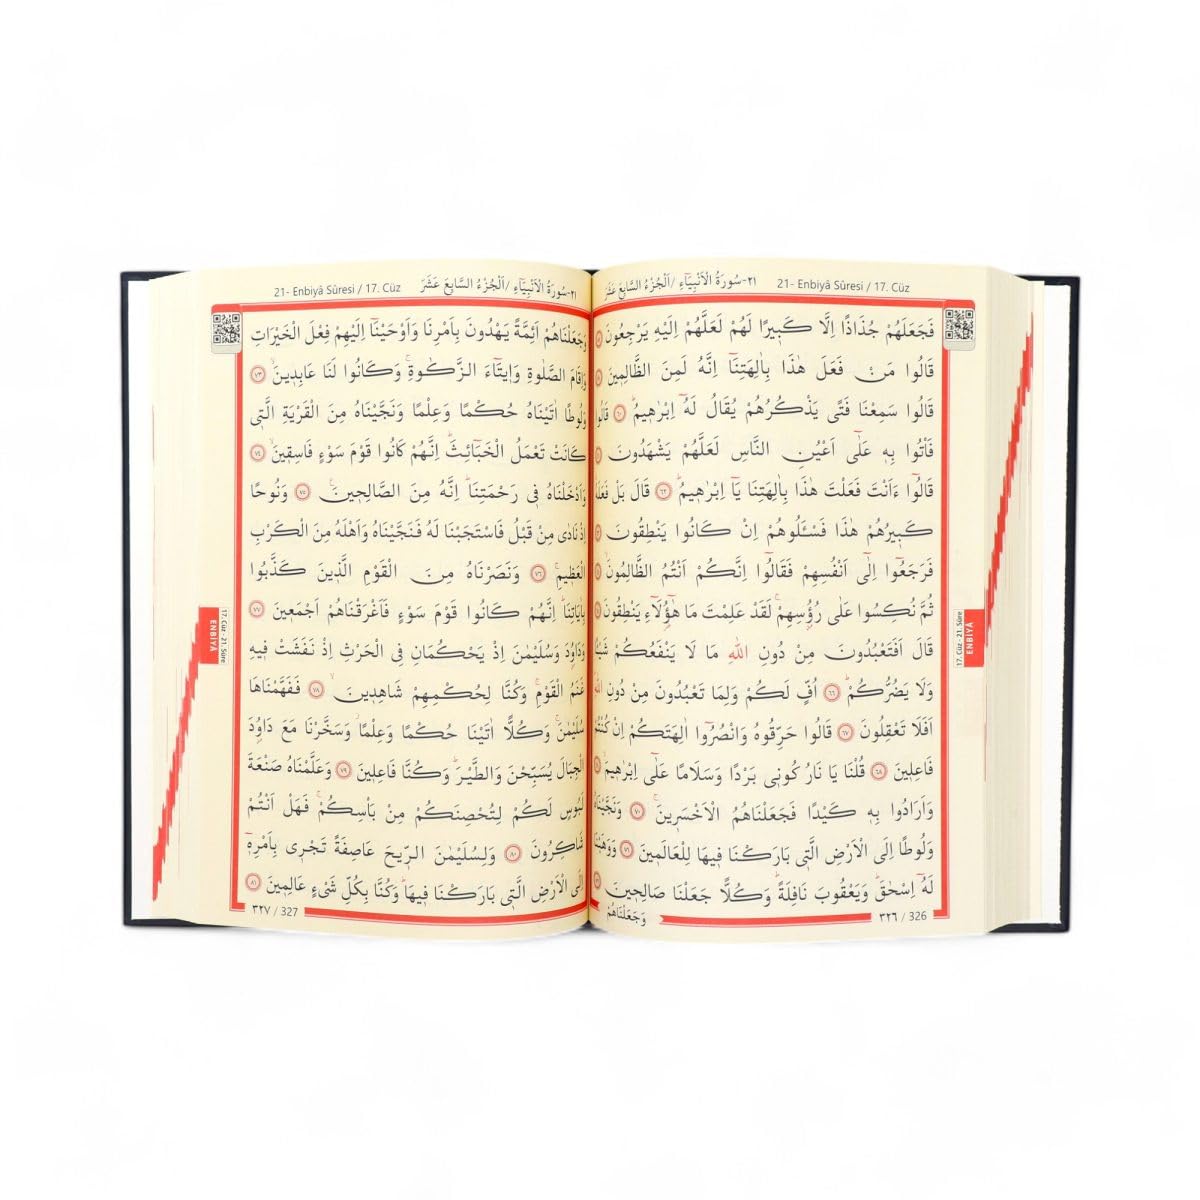 ٢١-سُورَةُ الْاَنْبِيَٓاءِ /اَلْجُزْءُ السَّابِعَ عَشَرَ 21- Enbiyâ Sûresi / 17. Cüz
فَجَعَلَهُمْ جُذَاذًا اِلَّا كَب۪يرًا لَهُمْ لَعَلَّهُمْ اِلَيْهِ يَرْجِعُونَ
قَالُوا مَنْ فَعَلَ هٰذَا بِاٰلِهَتِنَٓا اِنَّهُ لَمِنَ الظَّالِم۪ينَ
قَالُوا سَمِعْنَا فَتًى يَذْكُرُهُمْ يُقَالُ لَهُٓ اِبْرٰه۪يمُۜ ﴿٦٠﴾ قَالُوا
فَأْتُوا بِه۪ عَلٰٓى اَعْيُنِ النَّاسِ لَعَلَّهُمْ يَشْهَدُونَ
قَالُٓوا ءَاَنْتَ فَعَلْتَ هٰذَا بِاٰلِهَتِنَا يَٓا اِبْرٰه۪يمُۜ ﴿٦٢﴾ قَالَ بَلْ فَعَلَهُ
كَب۪يرُهُمْ هٰذَا فَسْـَٔلُوهُمْ اِنْ كَانُوا يَنْطِقُونَ
فَرَجَعُٓوا اِلٰٓى اَنْفُسِهِمْ فَقَالُٓوا اِنَّكُمْ اَنْتُمُ الظَّالِمُونَۙ
ثُمَّ نُكِسُوا عَلٰى رُؤُ۫سِهِمْۚ لَقَدْ عَلِمْتَ مَا هٰٓؤُ۬لَٓاءِ يَنْطِقُونَ
قَالَ اَفَتَعْبُدُونَ مِنْ دُونِ اللّٰهِ مَا لَا يَنْفَعُكُمْ شَيْـًٔا
وَلَا يَضُرُّكُمْۜ ﴿٦٦﴾ اُفٍّ لَكُمْ وَلِمَا تَعْبُدُونَ مِنْ دُونِ اللّٰهِ
اَفَلَا تَعْقِلُونَ ﴿٦٧﴾ قَالُوا حَرِّقُوهُ وَانْصُرُٓوا اٰلِهَتَكُمْ اِنْ كُنْتُمْ
فَاعِل۪ينَ ﴿٦٨﴾ قُلْنَا يَا نَارُ كُون۪ي بَرْدًا وَسَلَامًا عَلٰٓى اِبْرٰه۪يمَۙ
وَاَرَادُوا بِه۪ كَيْدًا فَجَعَلْنَاهُمُ الْاَخْسَر۪ينَۚ ﴿٧٠﴾ وَنَجَّيْنَاهُ
وَلُوطًا اِلَى الْاَرْضِ الَّت۪ي بَارَكْنَا ف۪يهَا لِلْعَالَم۪ينَ ﴿٧١﴾ وَوَهَبْنَا
لَهُٓ اِسْحٰقَۜ وَيَعْقُوبَ نَافِلَةًۜ وَكُلًّا جَعَلْنَا صَالِح۪ينَ
وَجَعَلْنَاهُمْ
٣٢٦ / 326
17. Cüz - 21. Sûre
ENBİYÂ
21- Enbiyâ Sûresi / 17. Cüz ٢١-سُورَةُ الْاَنْبِيَٓاءِ /اَلْجُزْءُ السَّابِعَ عَشَرَ
وَجَعَلْنَاهُمْ اَئِمَّةً يَهْدُونَ بِاَمْرِنَا وَاَوْحَيْنَٓا اِلَيْهِمْ فِعْلَ الْخَيْرَاتِ
وَاِقَامَ الصَّلٰوةِ وَا۪يتَٓاءَ الزَّكٰوةِۚ وَكَانُوا لَنَا عَابِد۪ينَۙ ﴿٧٣﴾
وَلُوطًا اٰتَيْنَاهُ حُكْمًا وَعِلْمًا وَنَجَّيْنَاهُ مِنَ الْقَرْيَةِ الَّت۪ي
كَانَتْ تَعْمَلُ الْخَبَٓائِثَۜ اِنَّهُمْ كَانُوا قَوْمَ سَوْءٍ فَاسِق۪ينَۙ ﴿٧٤﴾
وَاَدْخَلْنَاهُ ف۪ي رَحْمَتِنَاۜ اِنَّهُ مِنَ الصَّالِح۪ينَ۟ ﴿٧٥﴾ وَنُوحًا
اِذْ نَادٰى مِنْ قَبْلُ فَاسْتَجَبْنَا لَهُ فَنَجَّيْنَاهُ وَاَهْلَهُ مِنَ الْكَرْبِ
الْعَظ۪يمِۚ ﴿٧٦﴾ وَنَصَرْنَاهُ مِنَ الْقَوْمِ الَّذ۪ينَ كَذَّبُوا
بِاٰيَاتِنَاۜ اِنَّهُمْ كَانُوا قَوْمَ سَوْءٍ فَاَغْرَقْنَاهُمْ اَجْمَع۪ينَ ﴿٧٧﴾
وَدَاوُ۫دَ وَسُلَيْمٰنَ اِذْ يَحْكُمَانِ فِي الْحَرْثِ اِذْ نَفَشَتْ ف۪يهِ
غَنَمُ الْقَوْمِۚ وَكُنَّا لِحُكْمِهِمْ شَاهِد۪ينَۙ ﴿٧٨﴾ فَفَهَّمْنَاهَا
سُلَيْمٰنَۚ وَكُلًّا اٰتَيْنَا حُكْمًا وَعِلْمًاۘ وَسَخَّرْنَا مَعَ دَاوُ۫دَ
الْجِبَالَ يُسَبِّحْنَ وَالطَّيْرَۜ وَكُنَّا فَاعِل۪ينَ ﴿٧٩﴾ وَعَلَّمْنَاهُ صَنْعَةَ
لَبُوسٍ لَكُمْ لِتُحْصِنَكُمْ مِنْ بَأْسِكُمْۚ فَهَلْ اَنْتُمْ
شَاكِرُونَ ﴿٨٠﴾ وَلِسُلَيْمٰنَ الرّ۪يحَ عَاصِفَةً تَجْر۪ي بِاَمْرِه۪ٓ
اِلَى الْاَرْضِ الَّت۪ي بَارَكْنَا ف۪يهَاۜ وَكُنَّا بِكُلِّ شَيْءٍ عَالِم۪ينَ ﴿٨١﴾
٣٢٧ / 327
17. Cüz - 21. Sûre
ENBİYÂ